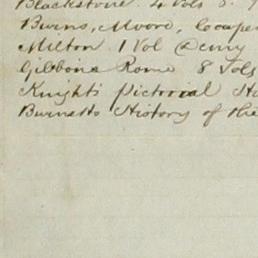 Blackstone 4 Vols 8.
Burns, Moore, Cowper
Milton 1 Vol Demy
Gibbons Rome 8 Vols
Knights Pictorial
Burnetts History of the